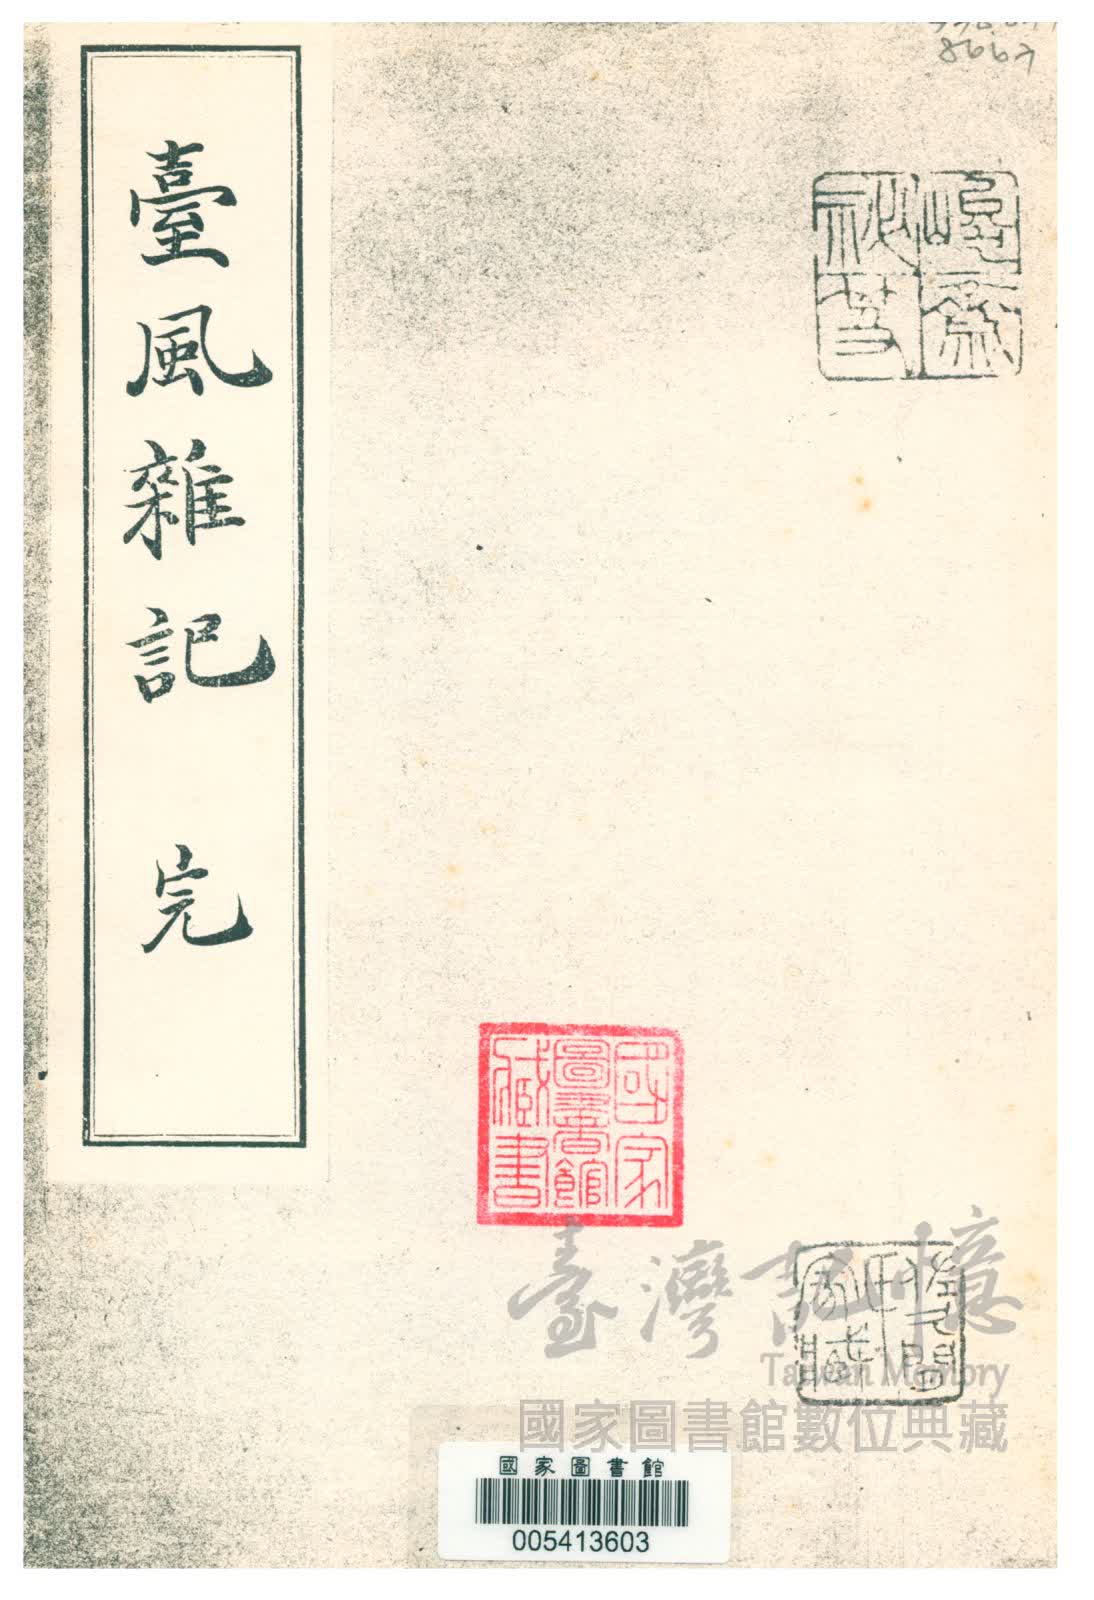 8667
臺風雜記 完
國家
圖書館
藏書
臺灣記憶
Taiwan Memory
國家圖書館數位典藏
國家圖書館
005413603